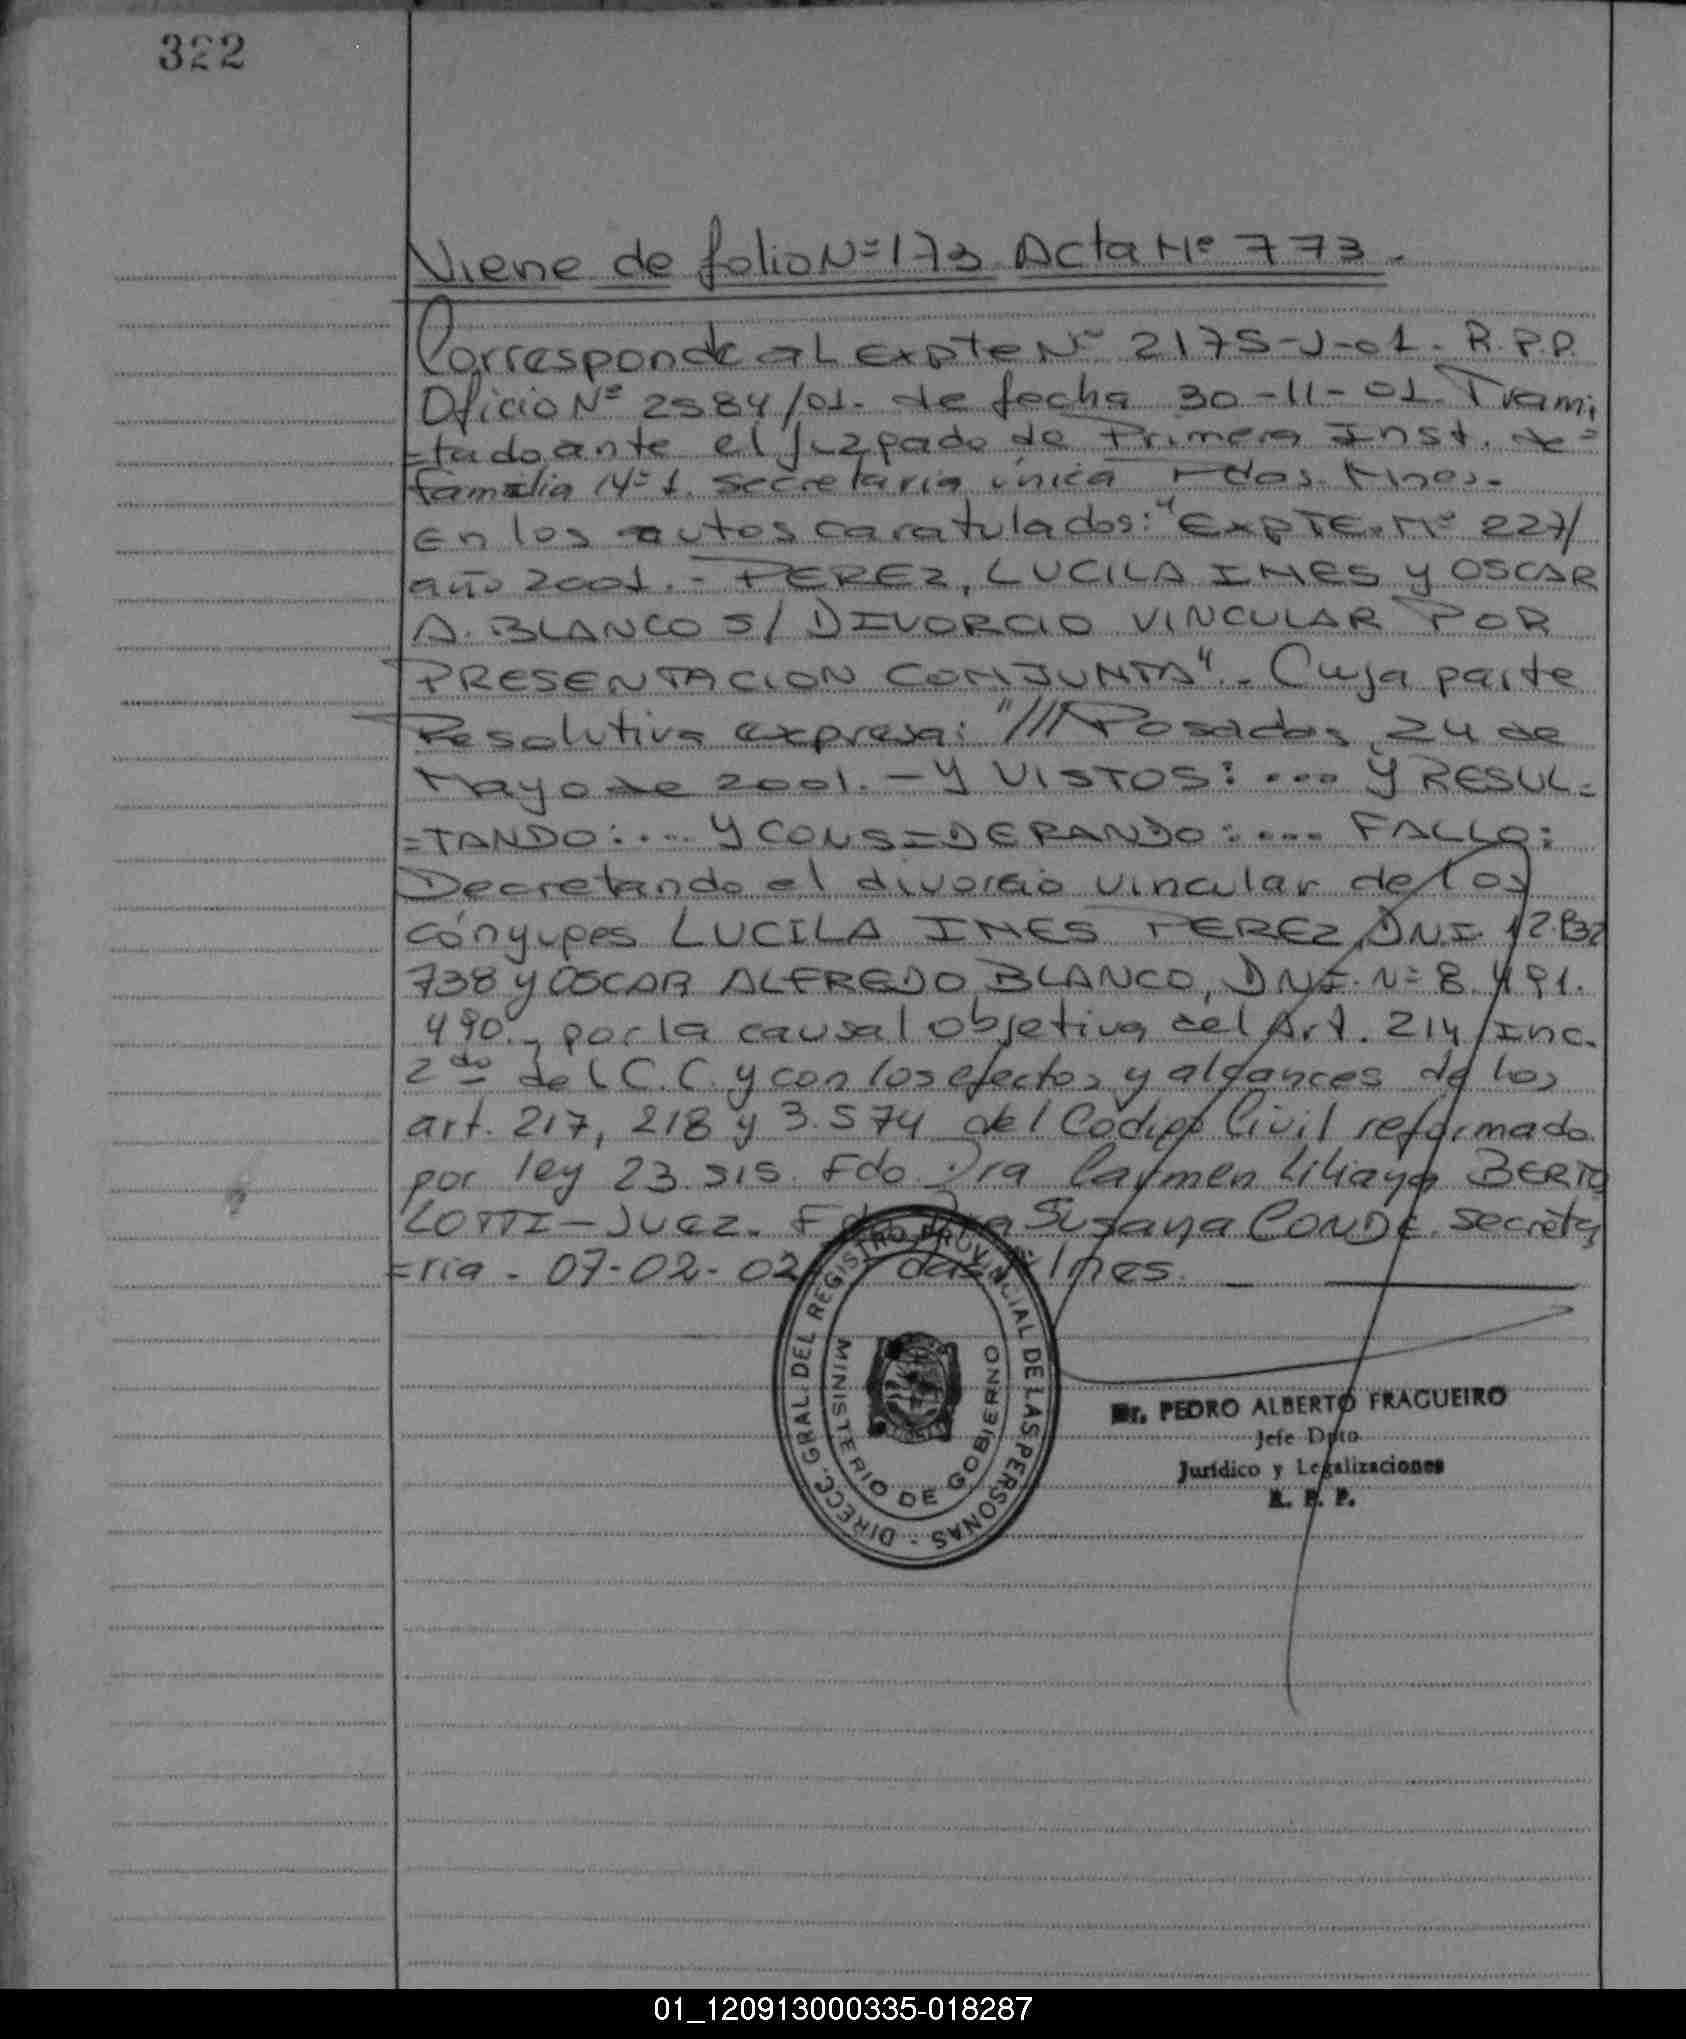 322
Viene de folio Nº 173 Acta Nº 773.
Corresponde al Expte Nº 2175-J-01. R.P.P.
Oficio Nº 2584/01. de fecha 30-11-01. Trami
=tado ante el Juzgado de Primera Inst. de=
familia Nº 1. secretaria única Pdas. Mnes.-
En los autos caratulados: "EXPTE. Nº 227/
año 2001.- PEREZ, LUCILA INES y OSCAR
A. BLANCO S/ DIVORCIO VINCULAR POR
PRESENTACION CONJUNTA".- Cuya parte
Resolutiva expresa: "///Posadas, 24 de
Mayo de 2001.- Y VISTOS: ... Y RESUL-
=TANDO: ... Y CONSIDERANDO: .... FALLO:
Decretando el divorcio vincular de los
cónyuges LUCILA INES PEREZ, DNI. 12.
738 y OSCAR ALFREDO BLANCO, DNI. Nº 8.491.
490.- por la causal objetiva del Art. 214 Inc.
2do del C.C. y con los efectos y alcances de los
art. 217, 218 y 3.574 del Codigo Civil reformado
por ley 23.515. Fdo Dra Carmen Liliana BERTO
LOTTI - Juez. Fdo Dra Susana CONDE. Secreta
=ria - 07-02-02 Pdas Mnes.
DIRECC. GRAL. DEL REGISTRO PROVINCIAL DE LAS PERSONAS -
MINISTERIO DE GOBIERNO
Dr. PEDRO ALBERTO FRAGUEIRO
Jefe Dpto
Jurídico y Legalizaciones
R. P. P.
01_120913000335-018287